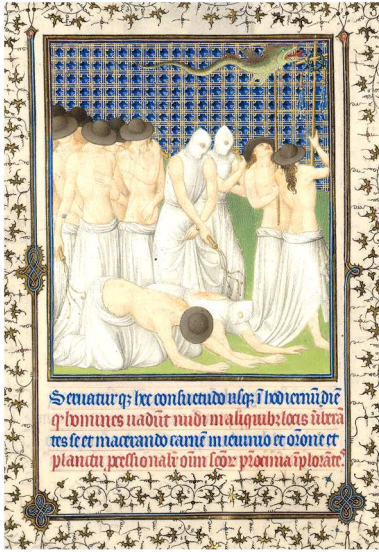 Seruatur qȝ hec consuetudo usqȝ ī hodiernū diē
qȝ homines uadūt nudi in aliquibȝ locis ūbera
tes se et macerando carnē in ieiunio et orōne et
planctu, pcessionalr̄ oīm scōr̄ prīocinia īplorāte